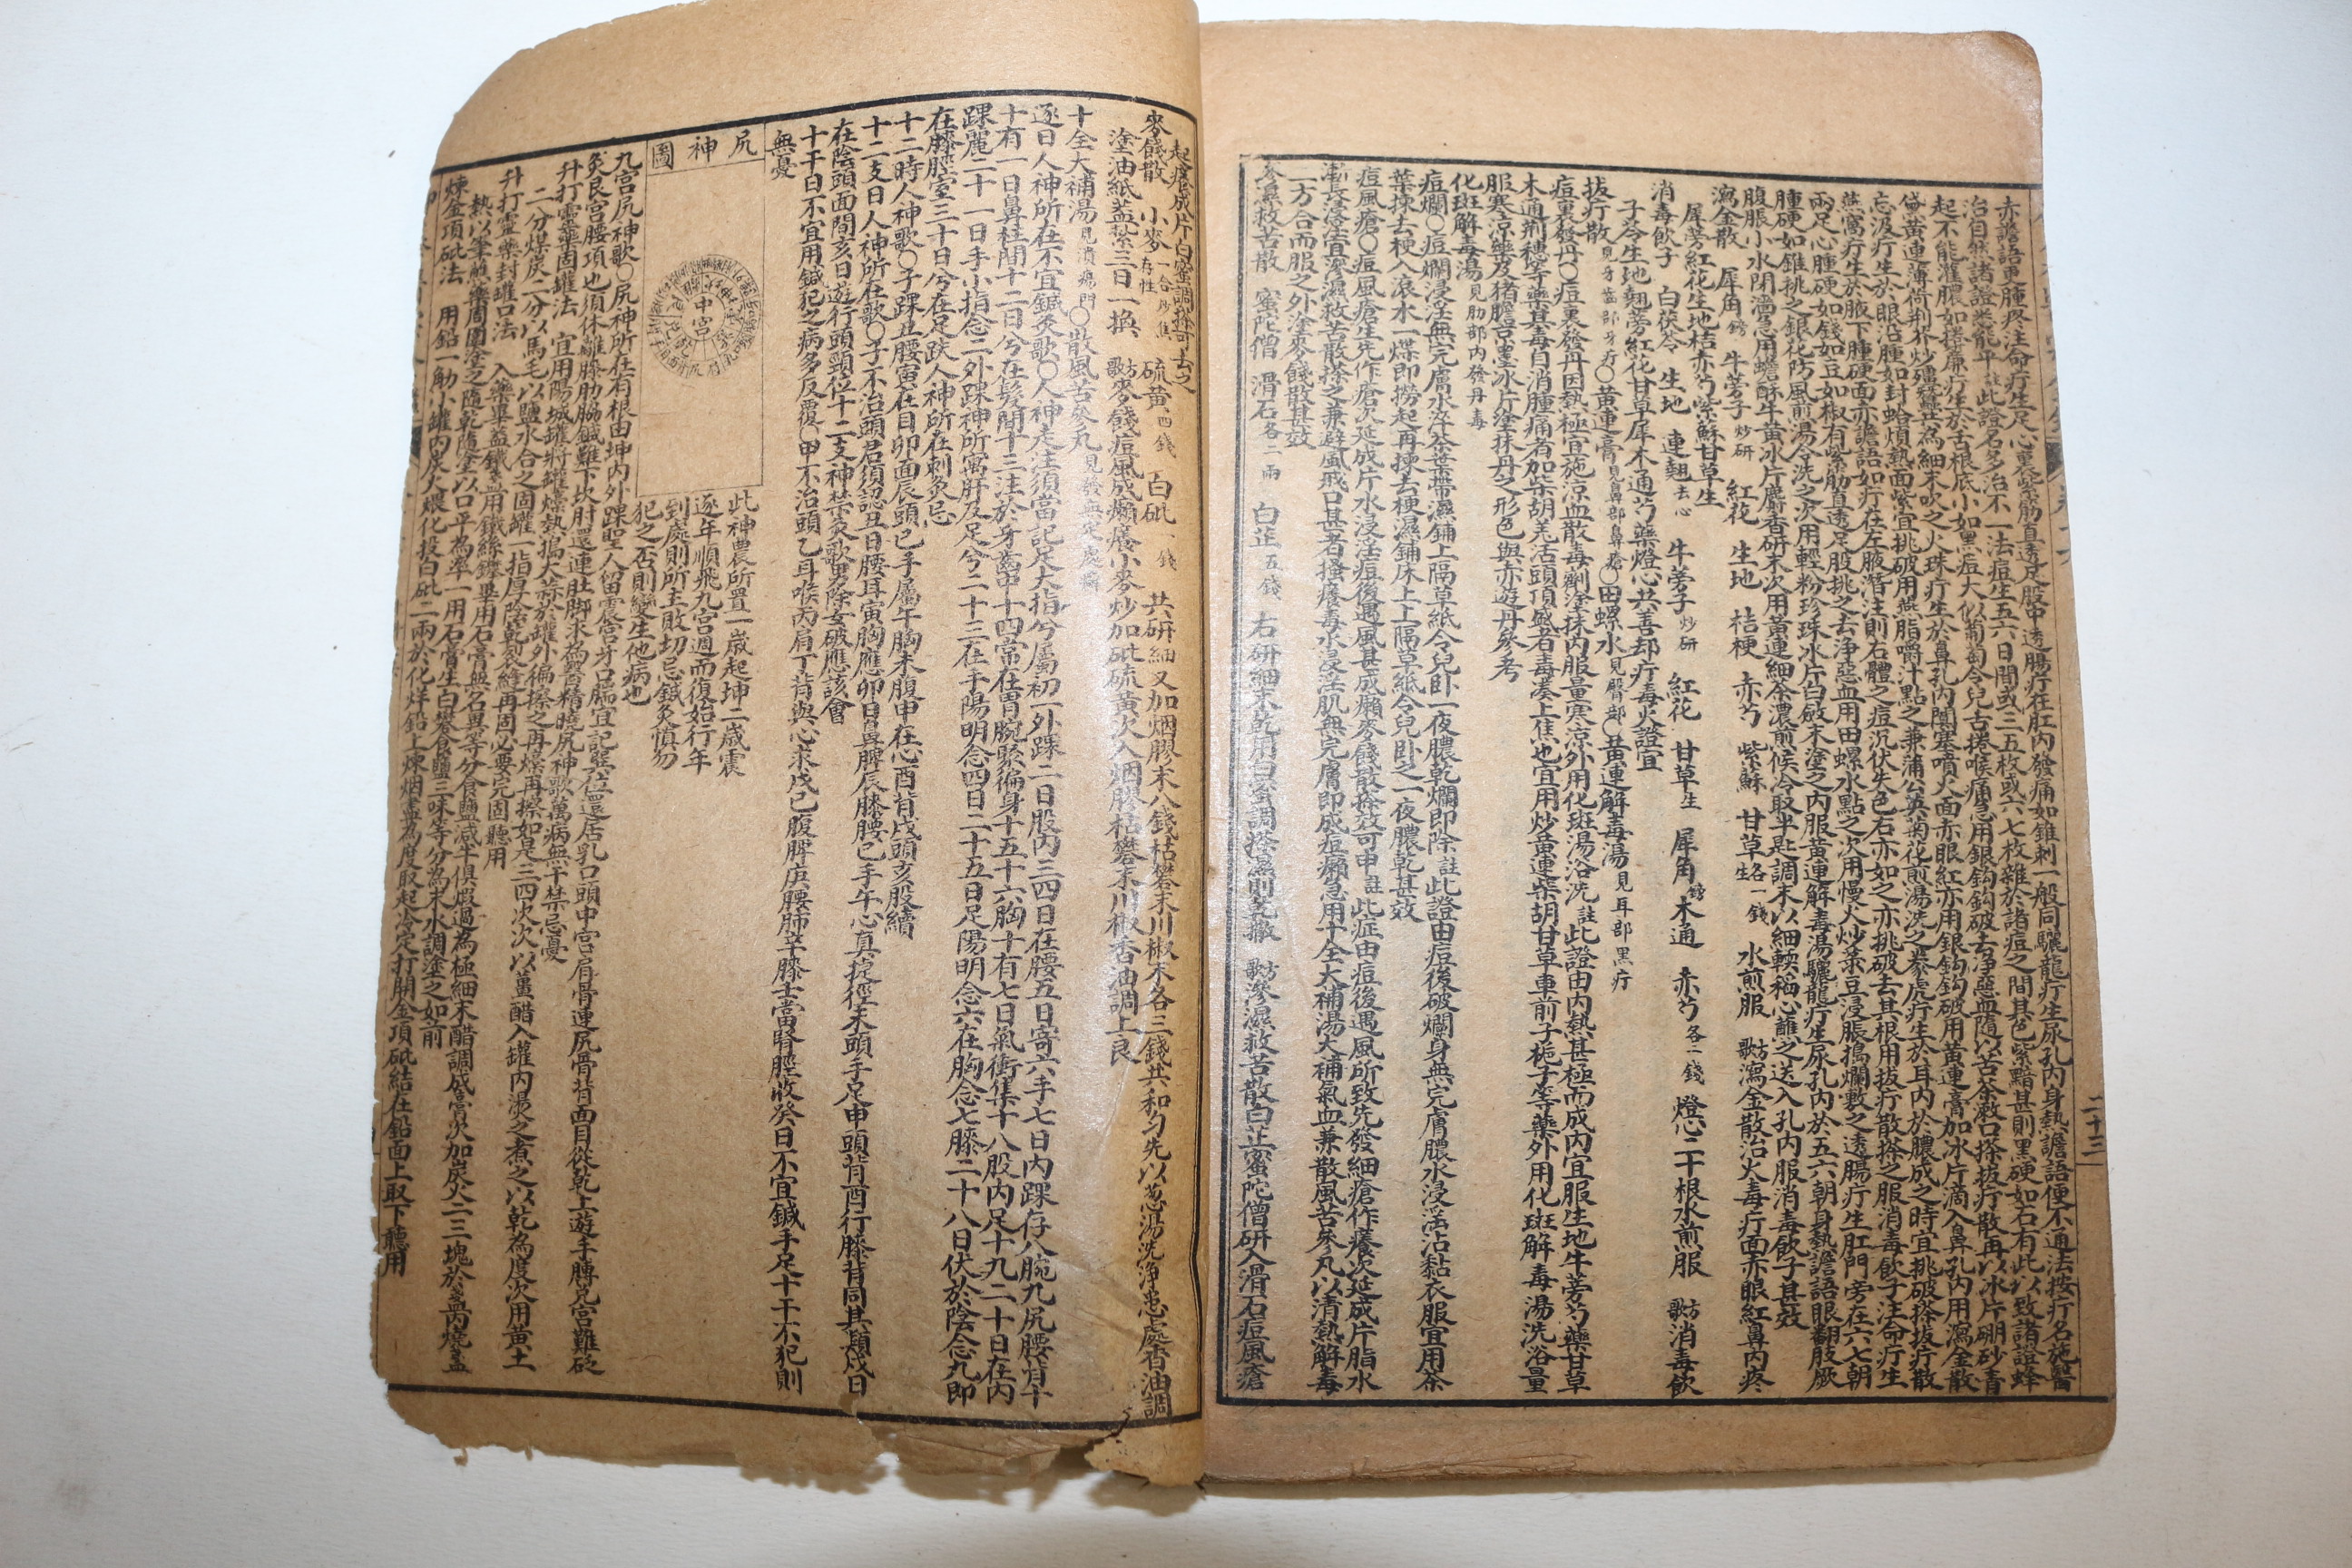 赤譫語更腫疼注命疔生足心裏紫筋直透足股中透腸疔在肛內發痛如錐刺一般同驪龍疔生尿孔內身熱譫語便不通法按疔名施醫
治自然諸證悉能平註此證名多治不一法痘生五六日間或三五枚或六七枚雜於諸痘之間其色紫黯甚則黑硬如石有此以致諸證蜂
起不能灌膿如捲簾疔生於舌根底小如黑痘大似葡萄令兒舌捲喉痛急用銀鈎鈎破去淨惡血隨以苦茶漱口搽拔疔散再以冰片硼砂青
黛黃連薄荷荆芥炒殭蠶共為細末吹之火珠疔生於鼻孔內闐塞噴火面赤眼紅亦用銀鈎鈎破用黃連膏加冰片滴入鼻孔內用瀉金散
忘汲疔生於眼沿腫如封蛤煩熱面紫宜挑破用燕脂嚼汁點之兼蒲公英菊花煎湯洗之豢虎疔生於耳內於膿成之時宜挑破搽拔疔散
燕窩疔生於腋下腫硬面赤譫語如疔在左腋潛注則右體之痘沉伏失色右亦如之亦挑破去其根用拔疔散搽之服消毒飲子注命疔生
兩足心腫硬如錢如豆如椒有紫筋直透足股挑之去淨惡血用田螺水點之次用慢火炒菉豆浸脹搗爛敷之透腸疔生肛門旁在六七朝
腫硬如錐挑之銀花防風煎湯令洗之次用輕粉珍珠冰片白斂末塗之內服黃連解毒湯驪龍疔生尿孔內於五六朝身熱譫語眼翻肢厥
腹脹小水閉濇急用蟾酥牛黃冰片麝香研末次用黃連細茶濃煎候冷取半匙調末以細軟稻心蘸之送入孔內服消毒飲子甚效
瀉金散 犀角鎊 牛蒡子炒研 紅花 生地 桔梗 赤芍 紫蘇 甘草生各一錢 水煎服 方歌瀉金散治火毒疔面赤眼紅鼻內疼
犀蒡紅花生地桔赤芍紫蘇甘草生
消毒飲子 白茯苓 生地 連翹去心 牛蒡子炒研 紅花 甘草生 犀角鎊 木通 赤芍各二錢 燈心二十根水煎服 方歌消毒飲
子苓生地翹蒡紅花甘草犀木通芍藥燈心共善却疔毒火證宣
拔疔散見牙齒部牙疔〇黃連膏見鼻部鼻瘡〇田螺水見臀部〇黃連解毒湯見耳部黑疔
痘裏發丹〇痘裏發丹因熱極宜施涼血散毒劑塗抹內服量寒涼外用化斑湯浴洗註此證由內熱甚極而成內宜服生地牛蒡芍藥甘草
木通荆穗等藥其毒自消腫痛者加柴胡羌活頭頂盛者毒湊上焦也宜用炒黃連柴胡甘草車前子梔子等藥外用化斑解毒湯洗浴量
服寒涼藥及猪膽京墨冰片塗抹丹之形色與赤遊丹參考
化斑解毒湯見肋部內發丹毒
痘爛〇痘爛浸淫無完膚水淬茶葉帶濕鋪上隔草紙令兒卧一夜膿乾爛即除註此證由痘後破爛身無完膚膿水浸淫沾黏衣服宜用茶
葉揀去梗入滾水一煠即撈起再揀去梗濕鋪床上上隔草紙令兒卧之一夜膿乾甚效
痘風瘡〇痘風瘡生先作瘡次延成片水浸淫痘後遇風甚成癩麥餞散搽效可申註此症由痘後遇風所致先發細瘡作癢次延成片脂水
漸長浸淫宜滲濕救苦散搽之兼避風戒口甚者搔癢毒水浸淫肌無完膚即成痘癩急用十全大補湯大補氣血兼散風苦參丸以清熱解毒
一方合而服之外塗麥餞散甚效
滲濕救苦散 蜜陀僧 滑石各二兩 白芷五錢 右研細末乾用白蜜調搽濕則乾撒 方歌滲濕救苦散白芷蜜陀僧研入滑石痘風瘡
二十三
起癢成片白蜜調搽可去之
麥餞散 小麥一合炒焦存性 硫黃四錢 白砒一錢 共研細又加烟膠末八錢枯礬末川椒末各三錢共和勻先以葱湯洗淨患處香油調
塗油紙蓋紮三日一換 方歌麥餞痘風成癩癢小麥炒加砒硫黃次入烟膠枯礬末川椒香油調上良
十全大補湯見潰瘍門〇散風苦參丸見發無定處癬
逐日人神所在不宜鍼灸歌〇人神走注須當記足大指兮屬初一外踝二日股內三四日在腰五日寄六手七日內踝存八腕九尻腰背十
十有一日鼻柱間十二日兮在髮間十三注於牙齒中十四常在胃腕聚徧身十五十六胸十有七日氣衝集十八股內足十九二十日在內
踝麗二十一日手小指念二外踝神所寓肝及足兮二十三在手陽明念四日二十五日足陽明念六在胸念七膝二十八日伏於陰念九即
在膝脛室三十日兮在足趺人神所在刺灸忌
十二時人神歌〇子踝丑腰寅在目卯面辰頭巳手屬午胸未腹申在心酉背戌頭亥股續
十二支日人神所在歌〇子不治頭君須認丑日腰耳寅胸應卯日鼻脾辰膝腰巳手午心真捷徑未頭手足申頭背酉行膝背同其類戌日
在陰頭面間亥日遊行頭頸位十二支神禁灸歌男除女破應該會
十干日不宜用鍼犯之病多反覆〇甲不治頭乙耳喉丙肩丁背與心求戊己腹脾庚腰肺辛膝壬當腎脛收癸日不宜鍼手足十干不犯則
無憂
尻神圖
中宮
此神農所置一歲起坤二歲震
逐年順飛九宮週而復始行年
到處則所主敗切忌鍼灸慎勿
犯之否則變生他病也
九宮尻神歌〇尻神所在有根由坤內外踝聖人留震宮牙口腨宜記巽位還居乳口頭中宮肩骨連尻骨背面目從乾上遊手膊兌宮難砭
灸艮宮腰項也須休離膝肋脇鍼難下坎肘還連肚脚求為醫精曉尻神歌萬病無干禁忌憂
升打靈藥固罐法 宜用陽城罐將罐燥熱搗大蒜於罐外徧擦之再燥再擦如是三四次次以薑醋入罐內燙之煮之以乾為度次用黃土
二分煤炭二分以馬毛以鹽水合之固罐一指厚陰乾裂縫再固必要完固聽用
升打靈藥封罐口法 入藥畢蓋鐵盞用鐵絲鏍畢用石膏無名異等分食鹽減半俱煅過為極細末醋調成膏次加炭火二三塊於盞內燒盞
熱以筆蘸藥周圍塗之隨乾隨塗以口平為準一用石膏生白礬食鹽三味等分為末水調塗之如前
煉金頂砒法 用鉛一觔小罐內炭火煨化投白砒二兩於化烊鉛上煉烟盡為度取起冷定打開金頂砒結在鉛面上取下聽用